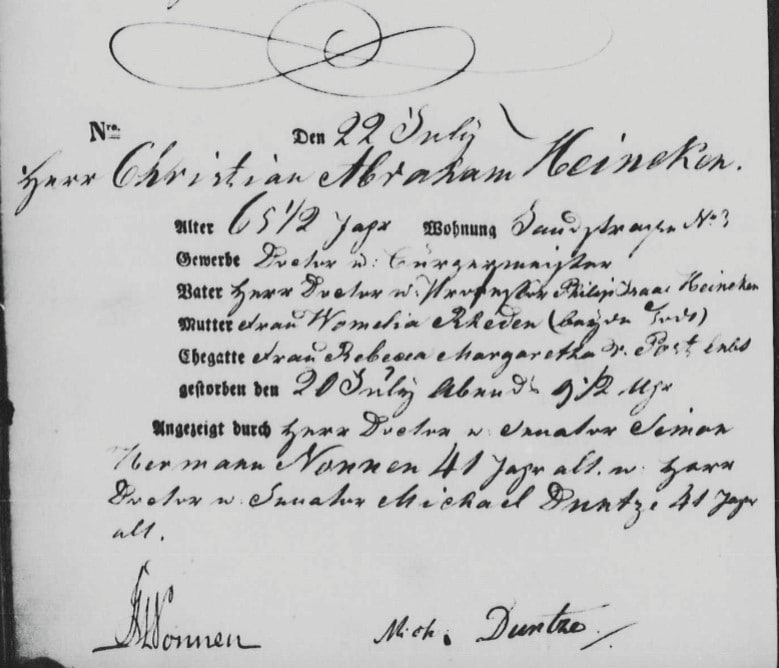 Nro. Den 22 July
Herr Christian Abraham Heineken.
Alter 65 1/2 Jahr Wohnung Sandstrasse No 3
Gewerbe Doctor u: Bürgermeister
Vater Herr Doctor u. Professor Philip Isaac Heineken
Mutter Frau Womelia Rheden (beyde todt)
Ehegatte Frau Rebecca Margaretha Post
gestorben den 20 July Abends 9 1/2 Uhr
Angezeigt durch Herr Doctor u. Senator Simon
Hermann Nonnen 41 Jahr alt. u. Herr
Doctor u. Senator Michael Duntze 41 Jahr
alt.
SHNonnen Mich. Duntze.